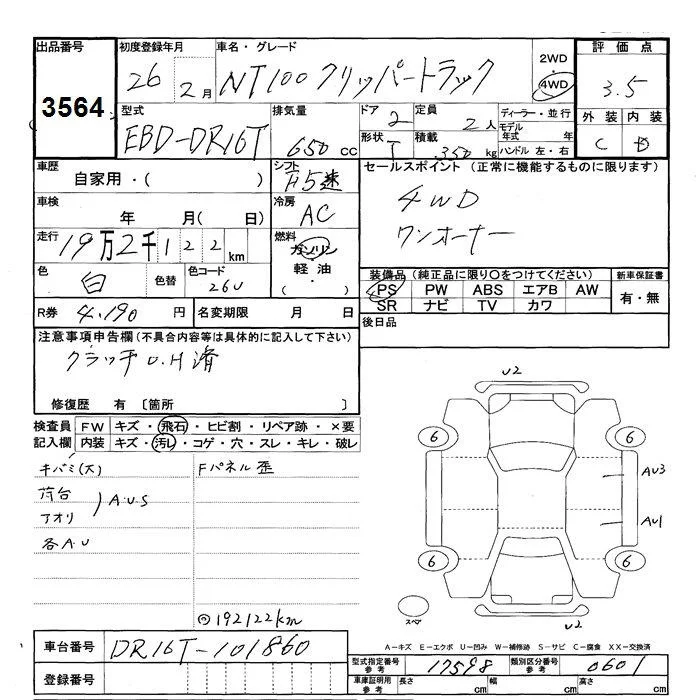 出品番号
3564
初度登録年月
26年 2月
車名・グレード
NT100クリッパートラック
2WD
4WD
評価点
3.5
型式
EBD-DR16T
排気量
650 cc
ドア
2
定員
2人
ディーラー・並行
モデル年式 年
ハンドル 左・右
形状
T
積載
350 kg
外装 内装
C D
車歴
自家用・( )
シフト
F5速
セールスポイント(正常に機能するものに限ります)
4WD
ワンオーナー
車検
年 月( 日)
冷房
AC
走行
19万2千122km
燃料
ガソリン
軽油・
( )
色
白
色替
色コード
26U
装備品(純正品に限り○をつけてください)
PS PW ABS エアB AW
SR ナビ TV カワ
新車保証書
有・無
R券 4,190円
名変期限 月 日
後日品
注意事項申告欄(不具合内容等は具体的に記入して下さい)
クラッチO.H済
修復歴 有〔箇所 〕
検査員記入欄
FW キズ・飛石・ヒビ割・リペア跡・×要
内装 キズ・汚レ・コゲ・穴・スレ・キレ・破レ
キバミ(大)
Fパネル歪
荷台
アオリ
AUS
各AU
192122km
U2
6
6
AU3
AU1
6
6
スペア
U2
A-キズ E-エクボ U-凹み W-補修跡 S-サビ C-腐食 XX-交換済
車台番号
DR16T-101860
型式指定番号参考
17598
類別区分番号参考
0601
登録番号
車庫証明用参考
長さ cm 幅 cm 高さ cm